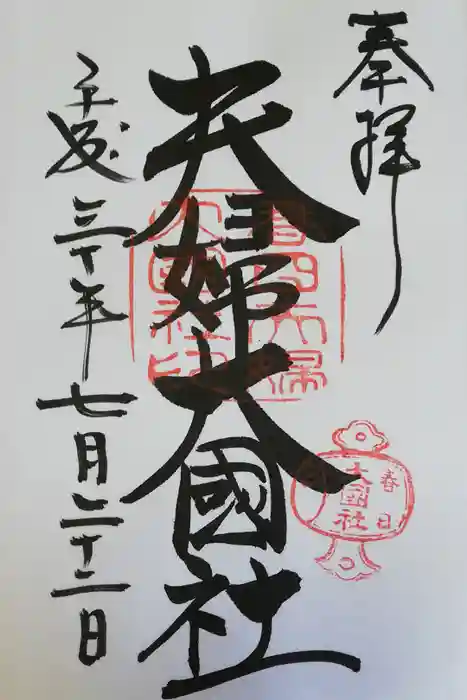 奉拝
夫婦大國社
平成三十年七月二十二日
春日
大國社